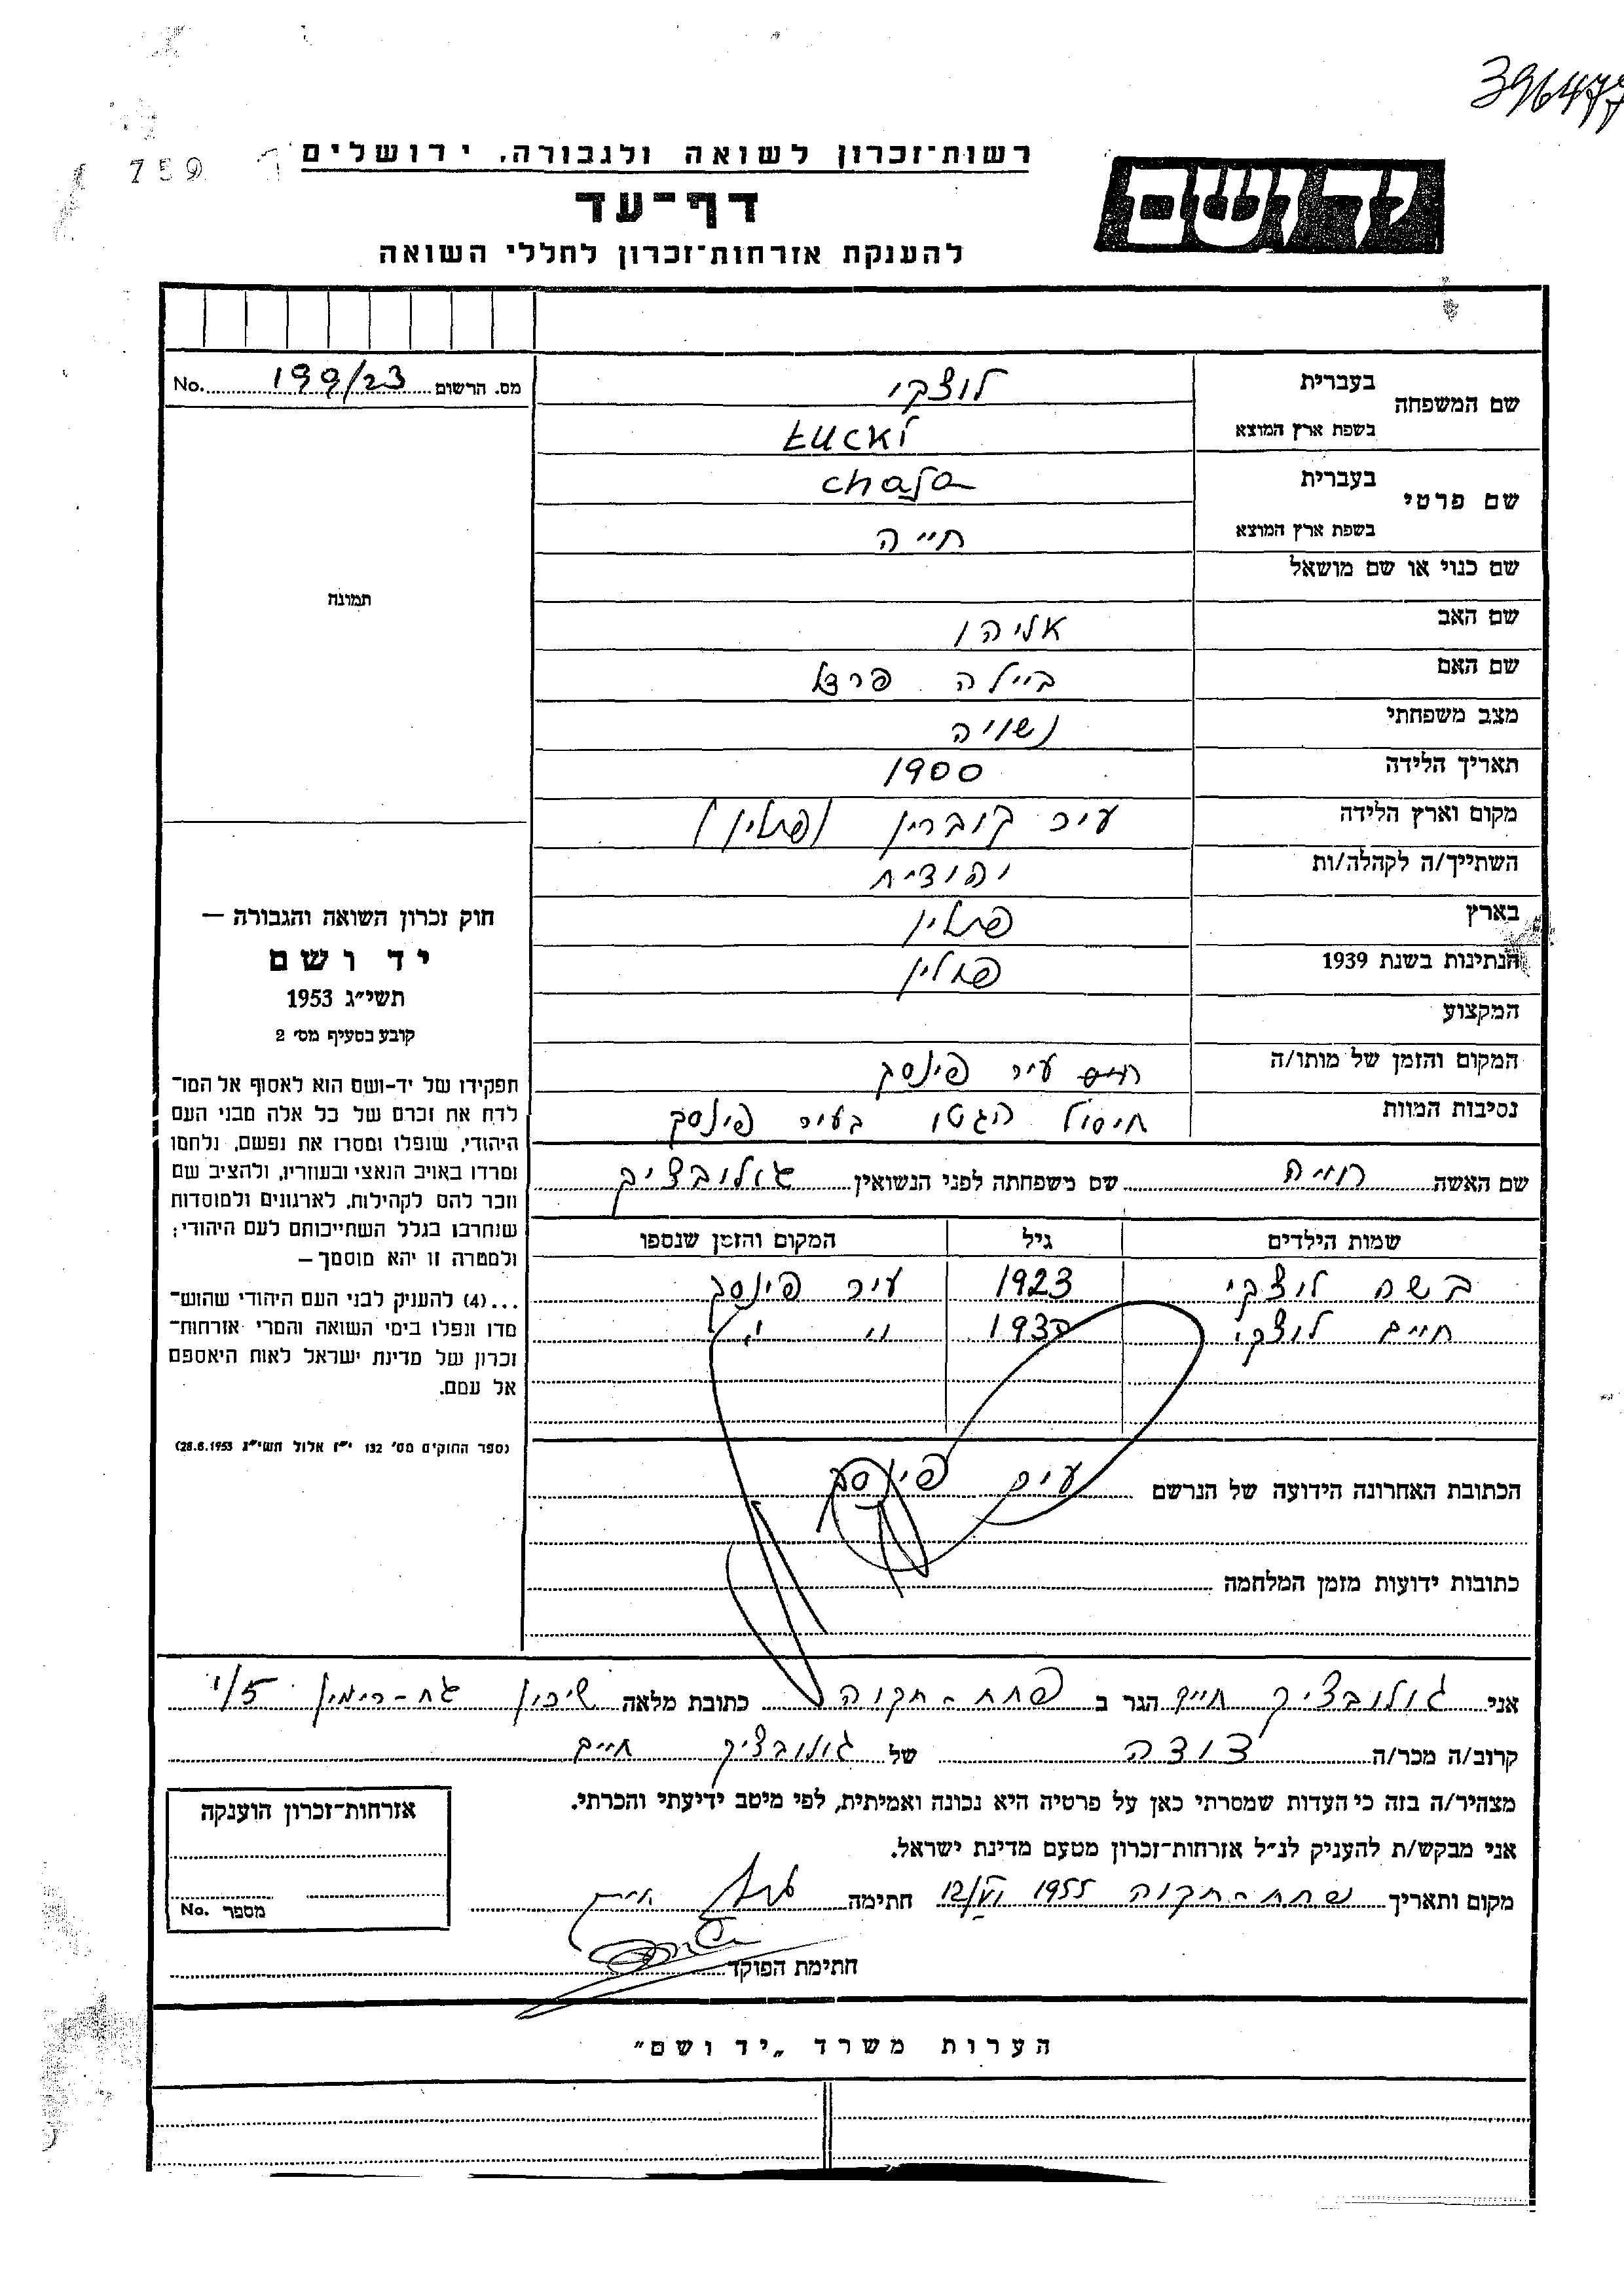 396477
759
רשות־זכרון לשואה ולגבורה, ירושלים
דף־עד
להענקת אזרחות־זכרון לחללי השואה
יד ושם
שם המשפחה בעברית לוצקי
בשפת ארץ המוצא ŁUCKI
שם פרטי בעברית Chaja
בשפת ארץ המוצא חייה
שם כנוי או שם מושאל
שם האב אליהו
שם האם ביילה
מצב משפחתי נשויה
תאריך הלידה 1900
מקום וארץ הלידה עיר קוברין (פולין)
השתייך/ה לקהלה/ות יהודית
בארץ פולין
הנתינות בשנת 1939 פולין
המקצוע
המקום והזמן של מותו/ה עיר פינסק
נסיבות המוות חיסול הגטו בעיר פינסק
שם האשה חייה שם משפחתה לפני הנשואין גולובציק
שמות הילדים גיל המקום והזמן שנספו
בשה לוצקי 1923 עיר פינסק
חיים לוצקי 1930 " "
הכתובת האחרונה הידועה של הנרשם עיר פינסק
כתובות ידועות מזמן המלחמה
No. 199/23 מס. הרשום
תמונה
חוק זכרון השואה והגבורה —
יד ושם
תשי״ג 1953
קובע בסעיף מס׳ 2
תפקידו של יד-ושם הוא לאסוף אל המו־
לדת את זכרם של כל אלה מבני העם
היהודי, שנפלו ומסרו את נפשם, נלחמו
ומרדו באויב הנאצי ובעוזריו, ולהציב שם
וזכר להם לקהילות, לארגונים ולמוסדות
שנחרבו בגלל השתייכותם לעם היהודי;
ולמטרה זו יהא מוסמך —
...(4) להעניק לבני העם היהודי שהוש־
מדו ונפלו בימי השואה והמרי אזרחות־
זכרון של מדינת ישראל לאות היאספם
אל עמם.
(ספר החוקים מס׳ 132 י״ז אלול תשי״ג 28.8.1953)
אני גולובציק חיים הגר ב פתח-תקוה כתובת מלאה שיכון גת-רימון 5/י
קרוב/ה מכר/ה דודה של גולובציק חיים
מצהיר/ה בזה כי העדות שמסרתי כאן על פרטיה היא נכונה ואמיתית, לפי מיטב ידיעתי והכרתי.
אני מבקש/ת להעניק לנ״ל אזרחות־זכרון מטעם מדינת ישראל.
מקום ותאריך פתח-תקוה 1955 12/VI חתימה
חתימת הפוקד
אזרחות־זכרון הוענקה
מספר No.
הערות משרד „יד ושם״